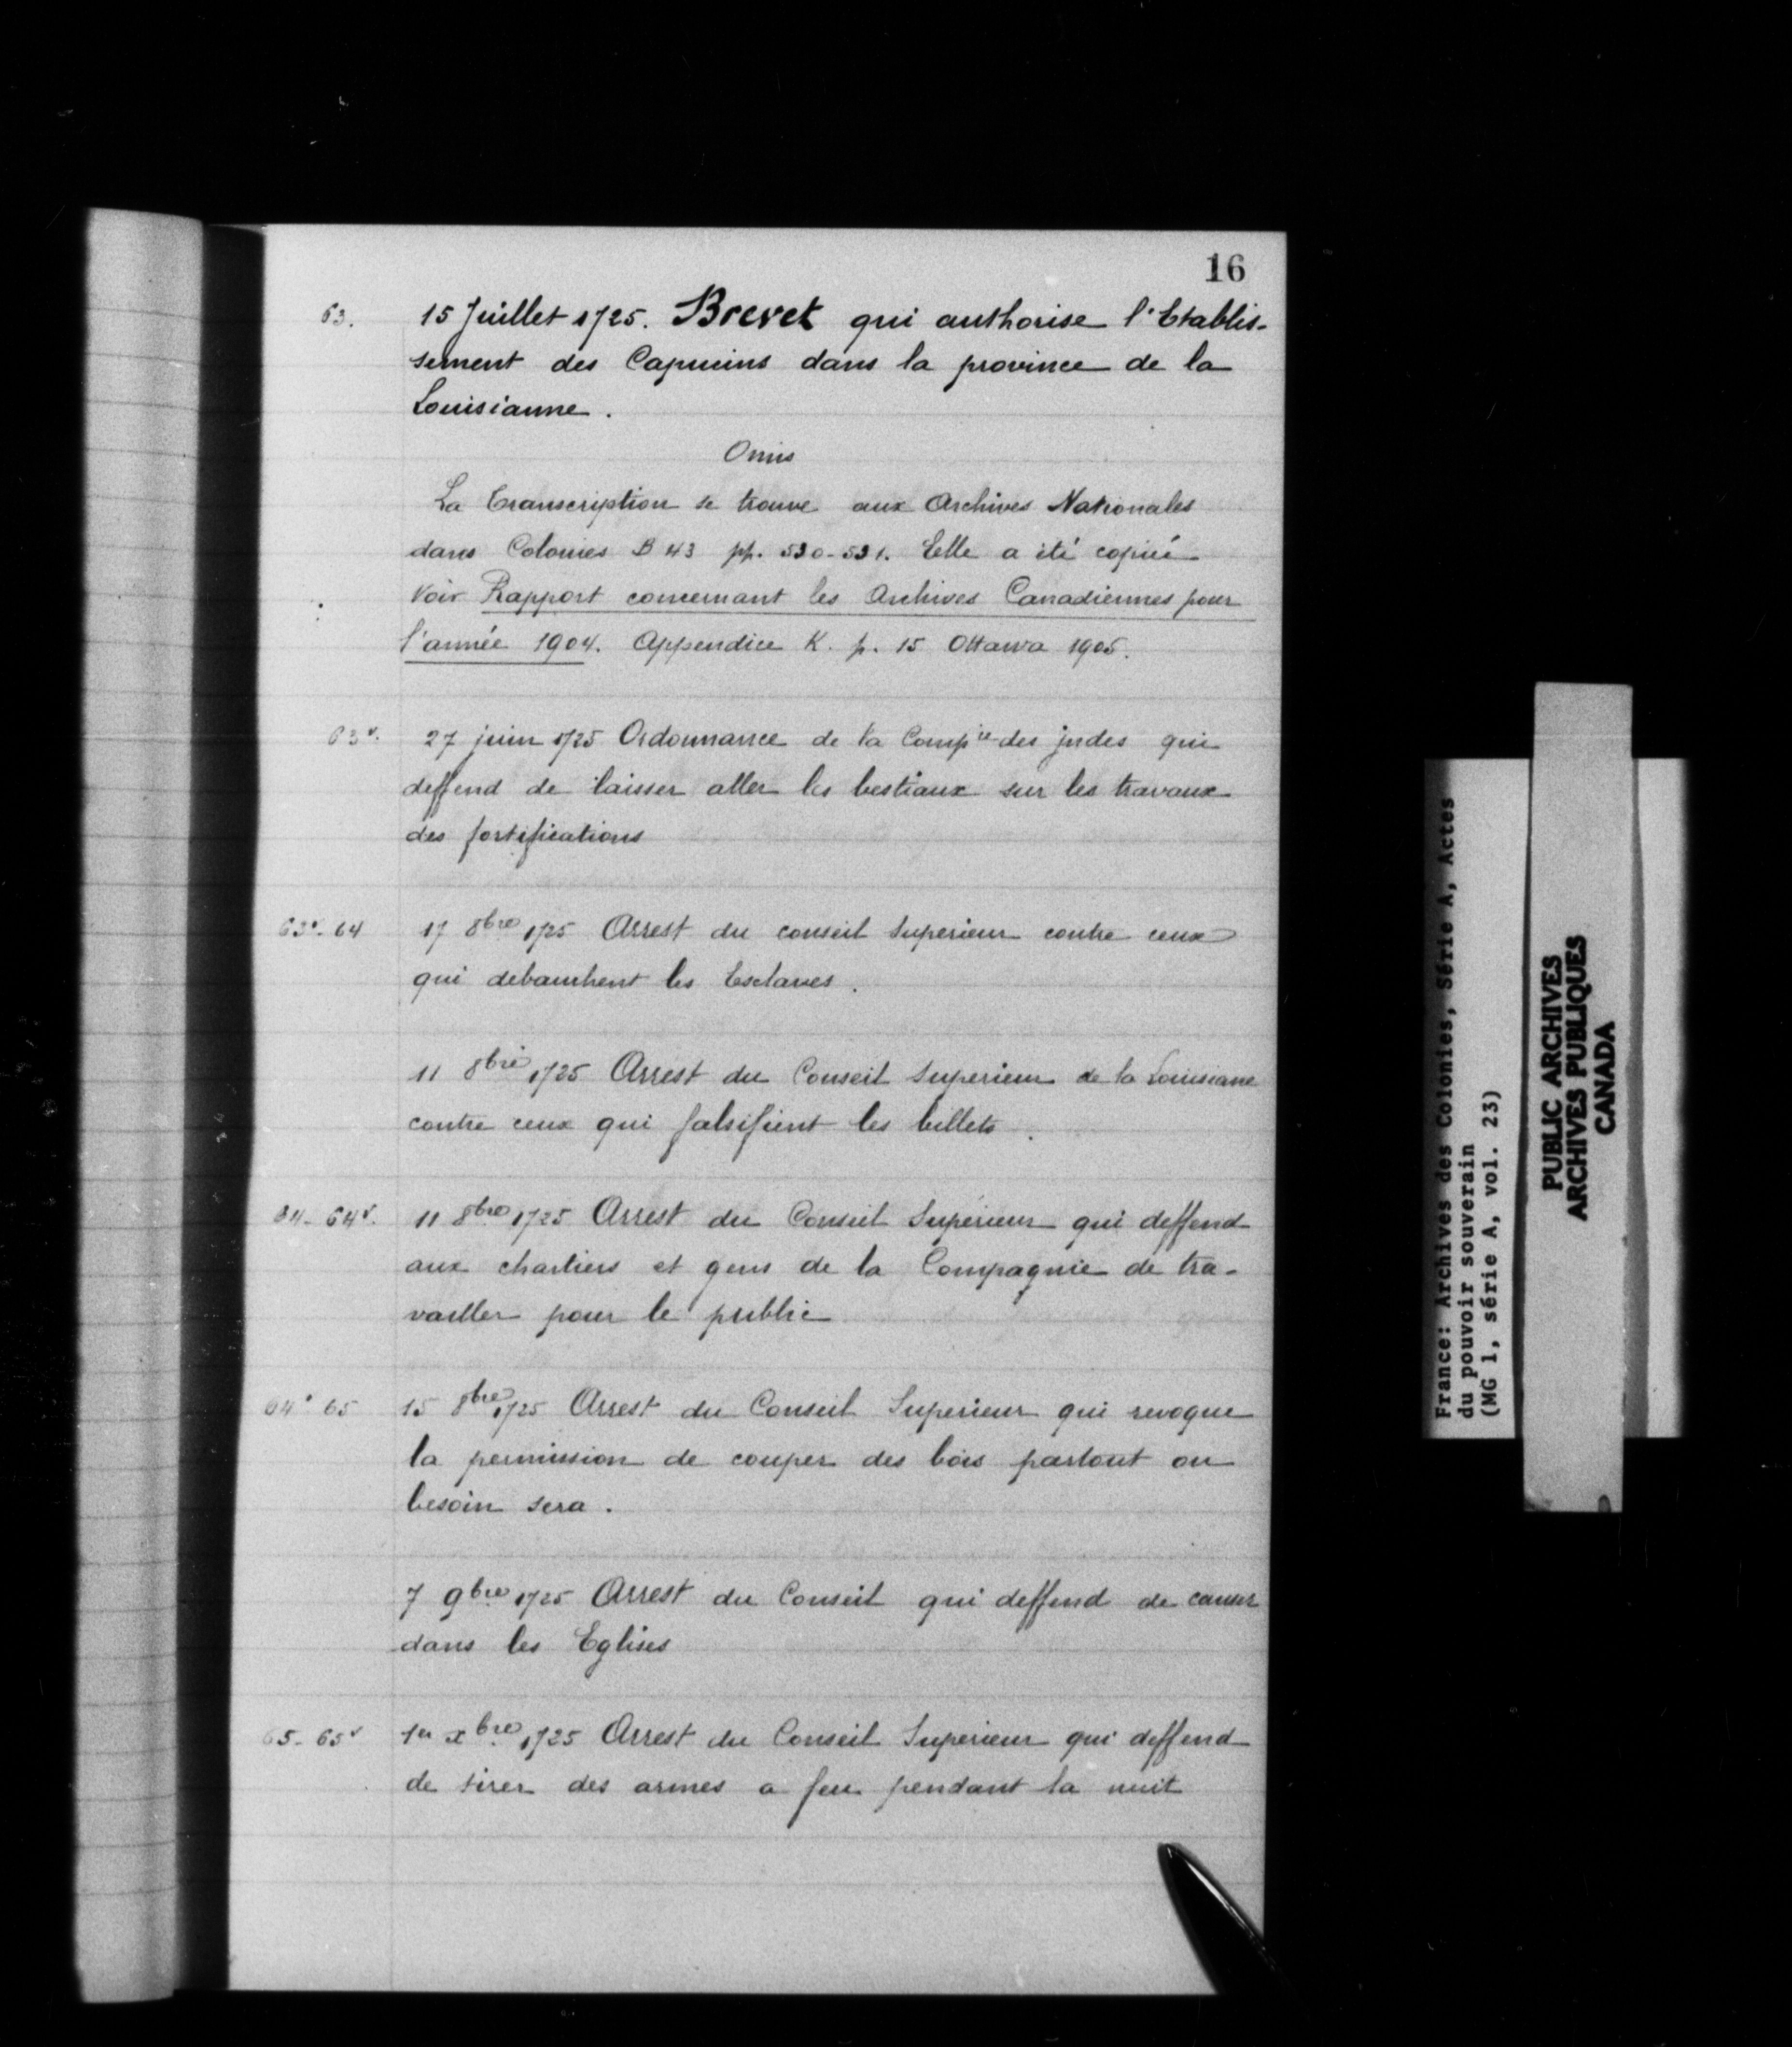 16
63. 15 Juillet 1725. Brevet qui authorise l'Etablis-
sement des Capucins dans la province de la
Louisianne.
Omis
La transcription se trouve aux Archives Nationales
dans Colonies B 43 pp. 530-531. Elle a été copiée
Voir Rapport concernant les Archives Canadiennes pour
l'année 1904. Appendice K. p. 15 Ottawa 1905.
63v. 27 juin 1725 Ordonnance de la Compie des jndes qui
deffend de laisser aller les bestiaux sur les travaux
des fortifications
63v-64 17 8bre 1725 Arrest du conseil Superieur contre ceux
qui debauchent les Esclaves.
11 8bre 1725 Arrest du Conseil Superieur de la Louisiane
contre ceux qui falsifient les billets.
64-64v. 11 8bre 1725 Arrest du Conseil Supérieur qui deffend
aux chartiers et gens de la Compagnie de tra-
vailler pour le public
64v 65 15 8bre 1725 Arrest du Conseil Superieur qui revoque
la permission de couper des bois partout ou
besoin sera.
7 9bre 1725 Arrest du Conseil qui deffend de causer
dans les Eglises
65-65v 1er xbre 1725 Arrest du Conseil Superieur qui deffend
de tirer des armes a feu pendant la nuit
France: Archives des Colonies, Série A, Actes
du pouvoir souverain
(MG 1, série A, vol. 23)
PUBLIC ARCHIVES
ARCHIVES PUBLIQUES
CANADA